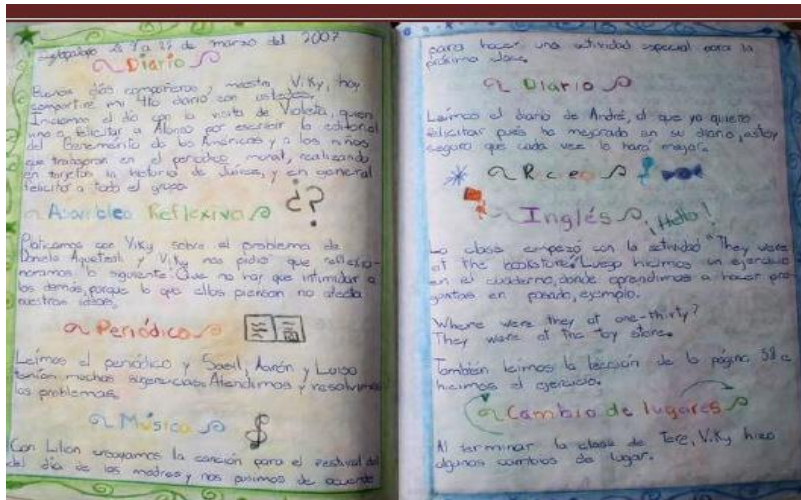 a 22 de marzo del 2007
Diario
Buenos días compañeros y maestra Viky, hoy
compartiré mi 4to diario con ustedes.
Iniciamos el día con la visita de Violeta, quien
vino a felicitar a Alonso por escribir la editorial
del Benemérito de las Américas y a los niños
que trabajaron en el periódico mural, realizando
en tarjetas la historia de Juárez, y en general
felicitó a todo el grupo.
Asamblea Reflexiva ¿?
Platicamos con Viky sobre el problema de
Daniela y Viky nos pidió que reflexio-
naramos lo siguiente: Que no hay que intimidar a
los demás, porque lo que ellos piensan no afecta
nuestras ideas.
Periódico
Leímos el periódico y Saeil, Aarón y Luisa
tenían muchas sugerencias. Atendimos y resolvimos
los problemas.
Música
Con Lilian ensayamos la canción para el festival del
del día de las madres y nos pusimos de acuerdo
para hacer una actividad especial para la
próxima clase.
Diario
Leímos el diario de André, al que yo quiero
felicitar pues ha mejorado en su diario, estoy
seguro que cada vez lo hará mejor.
Recreo
Inglés ¡Hello!
La clase empezó con la actividad "They were
at the bookstore". Luego hicimos un ejercicio
en el cuaderno, donde aprendimos a hacer pre-
guntas en pasado, ejemplo.
Where were they at one-thirty?
They were at the toy store.
También leímos la lección de la página 58 e
hicimos el ejercicio.
Cambio de lugares
Al terminar la clase de Tere, Viky hizo
algunos cambios de lugar.